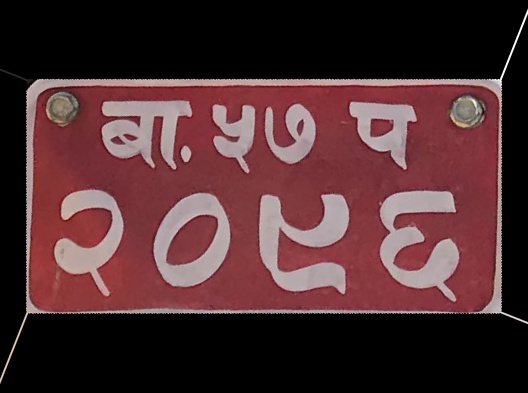 बा. ५७ प
२०९६